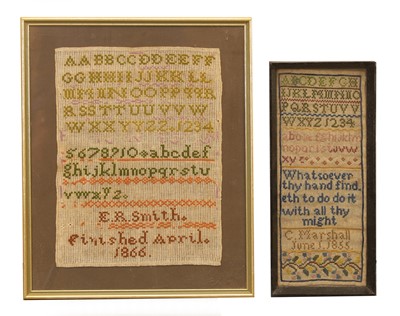 AABBCCDDEEFF
GGHHIIJJKKLL
MMNNOOPPQQRR
RSSTTUUVVW
WXXYYZZ.1234
5678910abcdef
ghijklmnopqrstu
vwxyz.
E.R.Smith.
Finished April.
1866.
ABCDEFGH
IJKLMNO
PQRSTUVV
WXYZ1234
Whatsoever
thy hand find.
eth to do do it
with all thy
might
C. Marshall
June 1. 1855.